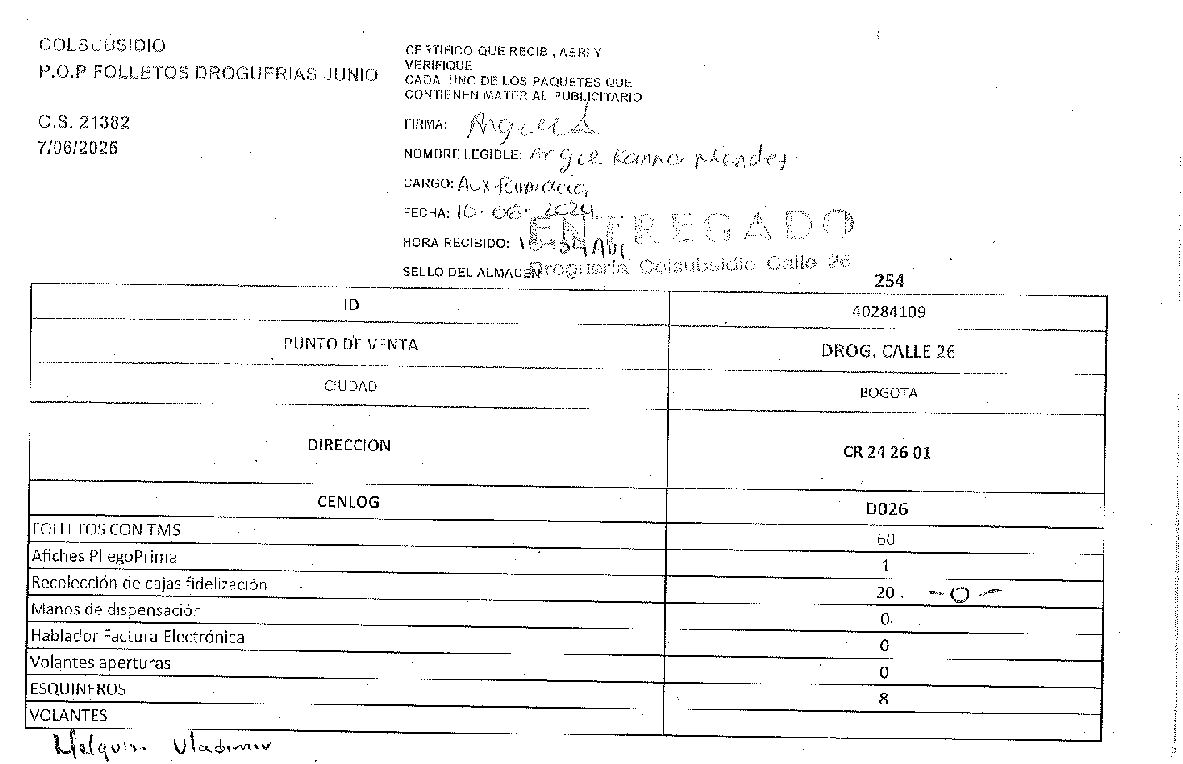 COLSUBSIDIO
P.O.P FOLLETOS DROGUERIAS JUNIO
C.S. 21382
7/06/2025
CERTIFICO QUE RECIBI, ABRI Y
VERIFIQUE
CADA UNO DE LOS PAQUETES QUE
CONTIENEN MATERIAL PUBLICITARIO
FIRMA:
NOMBRE LEGIBLE: Argie Mendez
CARGO: Aux Farmacia
FECHA: 10-06-2024
HORA RECIBIDO:
ENTREGADO
SELLO DEL ALMACEN
Droguería Colsubsidio Calle 26
254
ID 40284109
PUNTO DE VENTA DROG. CALLE 26
CIUDAD BOGOTA
DIRECCION CR 24 26 01
CENLOG D026
FOLLETOS CON TMS 60
Afiches PliegoPrima 1
Recolección de cajas fidelización 20 -0-
Manos de dispensación 0
Hablador Factura Electrónica 0
Volantes aperturas 0
ESQUINEROS 8
VOLANTES
Vladimir